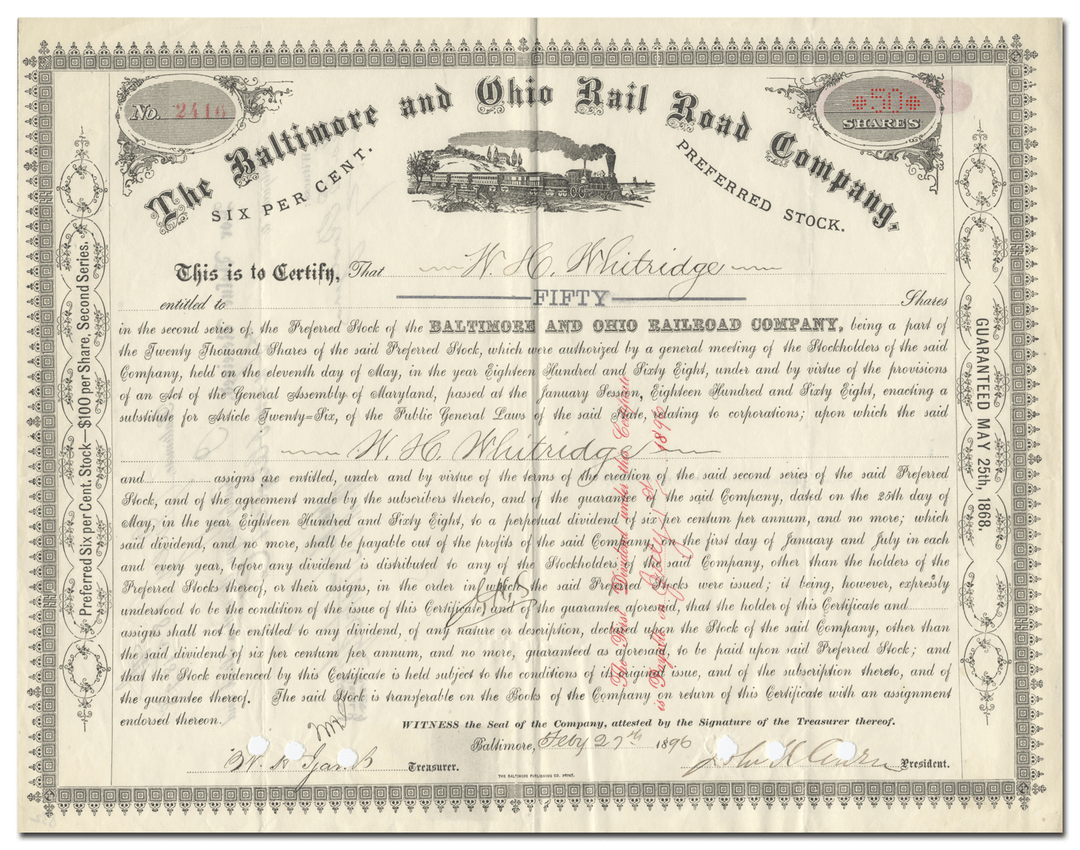 No. 2416
The Baltimore and Ohio Rail Road Company,
*50*
SHARES
SIX PER CENT.
PREFERRED STOCK.
This is to Certify, That W. H. Whitridge
entitled to FIFTY Shares
in the second series of the Preferred Stock of the BALTIMORE AND OHIO RAILROAD COMPANY, being a part of
the Twenty Thousand Shares of the said Preferred Stock, which were authorized by a general meeting of the Stockholders of the said
Company, held on the eleventh day of May, in the year Eighteen Hundred and Sixty Eight, under and by virtue of the provisions
of an Act of the General Assembly of Maryland, passed at the January Session, Eighteen Hundred and Sixty Eight, enacting a
substitute for Article Twenty-Six, of the Public General Laws of the said State, relating to corporations; upon which the said
W. H. Whitridge
and assigns are entitled, under and by virtue of the terms of the creation of the said second series of the said Preferred
Stock, and of the agreement made by the subscribers thereto, and of the guarantee of the said Company, dated on the 25th day of
May, in the year Eighteen Hundred and Sixty Eight, to a perpetual dividend of six per centum per annum, and no more; which
said dividend, and no more, shall be payable out of the profits of the said Company, on the first day of January and July in each
and every year, before any dividend is distributed to any of the Stockholders of the said Company, other than the holders of the
Preferred Stocks thereof, or their assigns, in the order in which the said Preferred Stocks were issued; it being, however, expressly
understood to be the condition of the issue of this Certificate and of the guarantee aforesaid, that the holder of this Certificate and
assigns shall not be entitled to any dividend, of any nature or description, declared upon the Stock of the said Company, other than
the said dividend of six per centum per annum, and no more, guaranteed as aforesaid, to be paid upon said Preferred Stock; and
that the Stock evidenced by this Certificate is held subject to the conditions of its original issue, and of the subscription thereto, and of
the guarantee thereof. The said Stock is transferable on the Books of the Company on return of this Certificate with an assignment
endorsed thereon.
WITNESS the Seal of the Company, attested by the Signature of the Treasurer thereof.
Baltimore, Feby 27th 1896
Treasurer.
President.
THE BALTIMORE PUBLISHING CO. PRINT.
Preferred Six per Cent. Stock—$100 per Share, Second Series.
GUARANTEED MAY 25th, 1868.
The First Dividend under this Certificate
is Payable on July 1st 1896